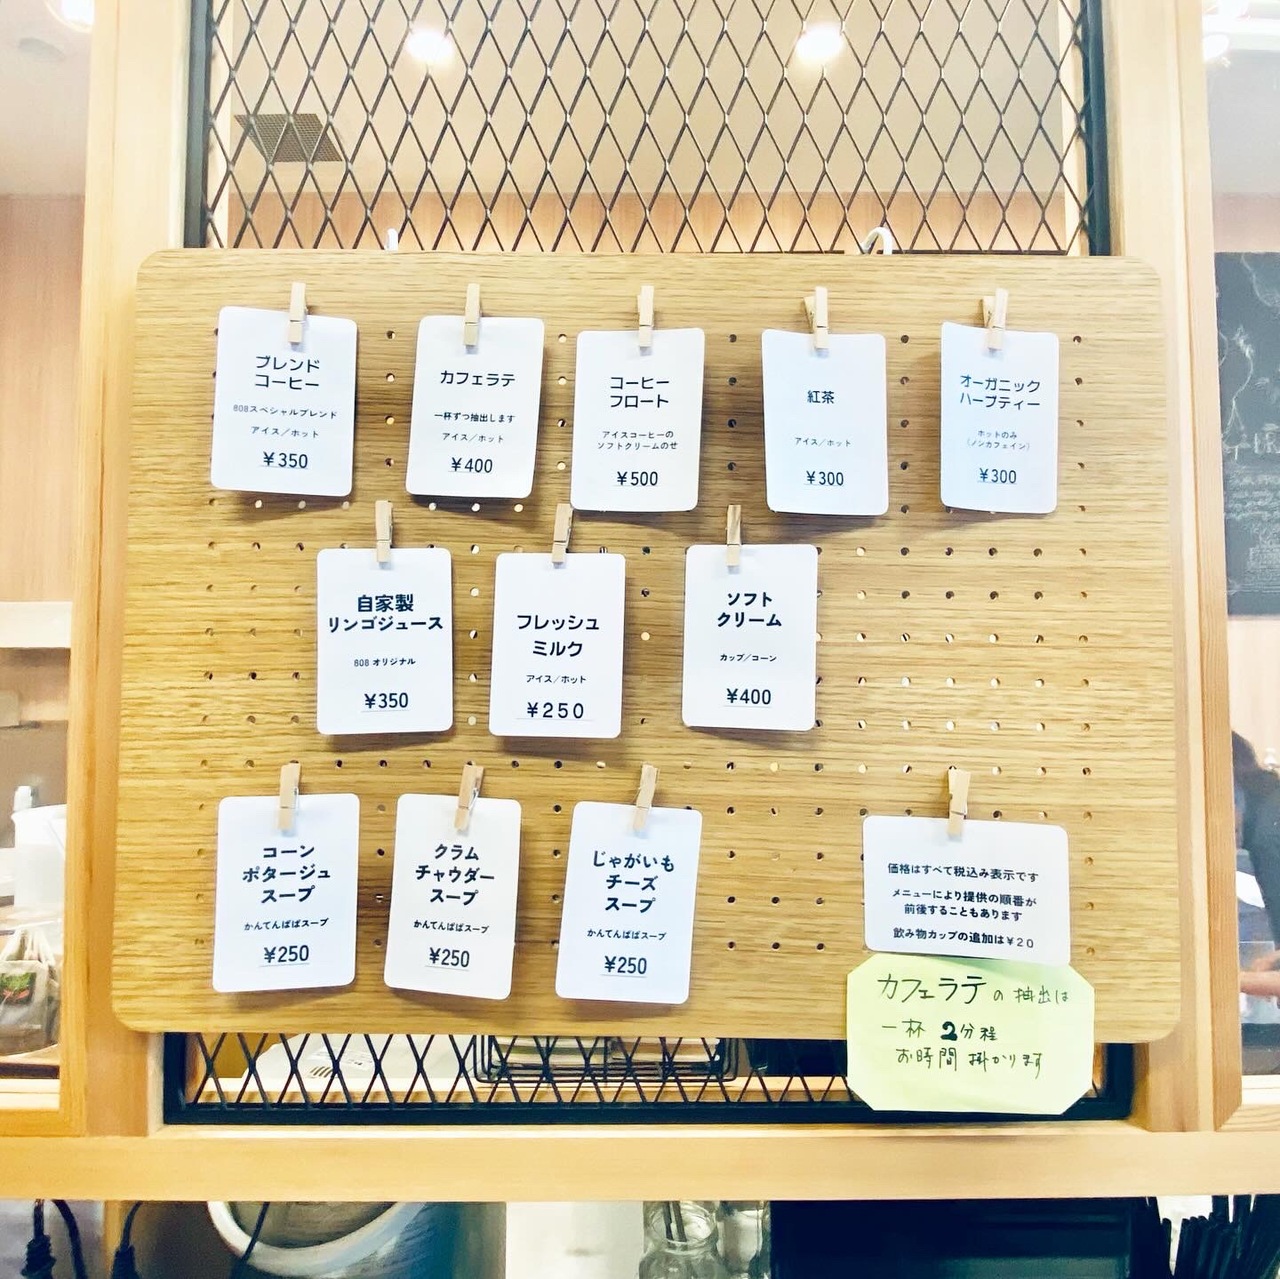 ブレンド
コーヒー
808スペシャルブレンド
アイス／ホット
¥350
カフェラテ
一杯ずつ抽出します
アイス／ホット
¥400
コーヒー
フロート
アイスコーヒーの
ソフトクリームのせ
¥500
紅茶
アイス／ホット
¥300
オーガニック
ハーブティー
ホットのみ
（ノンカフェイン）
¥300
自家製
リンゴジュース
808 オリジナル
¥350
フレッシュ
ミルク
アイス／ホット
¥250
ソフト
クリーム
カップ／コーン
¥400
コーン
ポタージュ
スープ
かんてんぱぱスープ
¥250
クラム
チャウダー
スープ
かんてんぱぱスープ
¥250
じゃがいも
チーズ
スープ
かんてんぱぱスープ
¥250
価格はすべて税込み表示です
メニューにより提供の順番が
前後することもあります
飲み物カップの追加は¥20
カフェラテの抽出は
一杯 2分程
お時間 掛かります